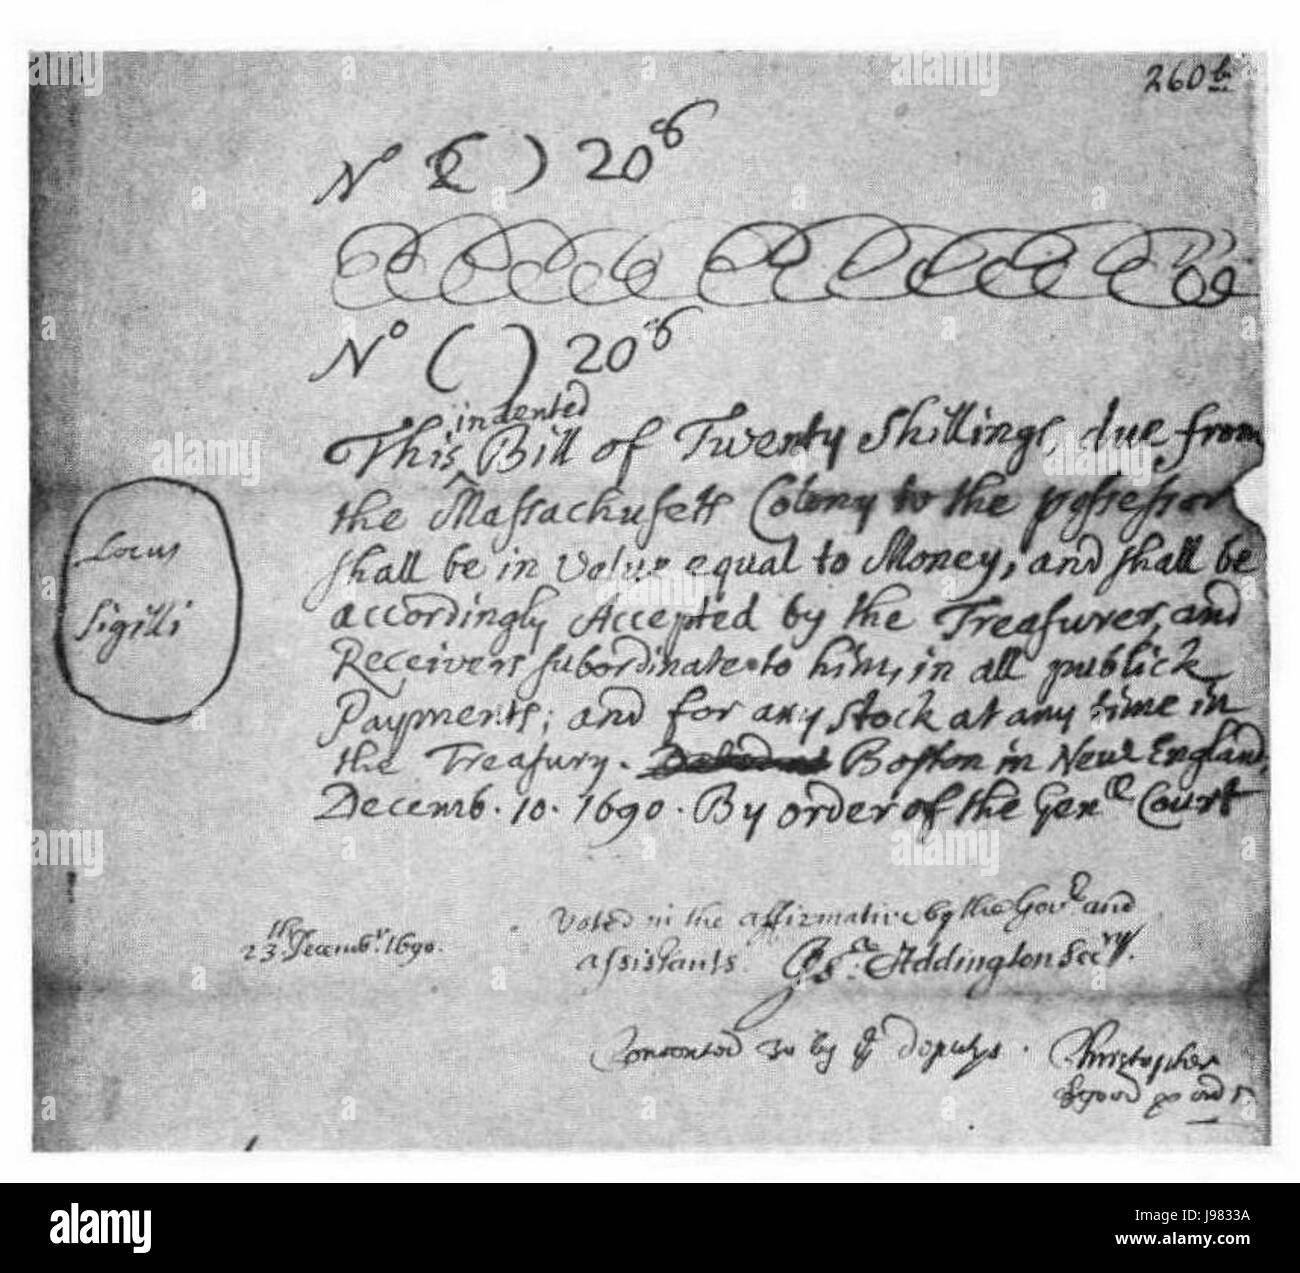 260 b
No ( ) 20s
No ( ) 20s
indented
This ^ Bill of Twenty Shillings, due from
the Massachusetts Colony to the possessor
shall be in value equal to Money, and shall be
accordingly Accepted by the Treasurer, and
Receivers subordinate to him, in all publick
Payments; and for any stock at any time in
the Treasury. Boston in New England,
Decemb. 10. 1690. By order of the Genll Court
Locus
Sigilli
Voted in the affirmative by the Govr and
23th Decembr. 1690. assistants. Isa: Addington Secry.
Consented to by ye deputys. Christopher
alamy
Image ID: J9833A
www.alamy.com